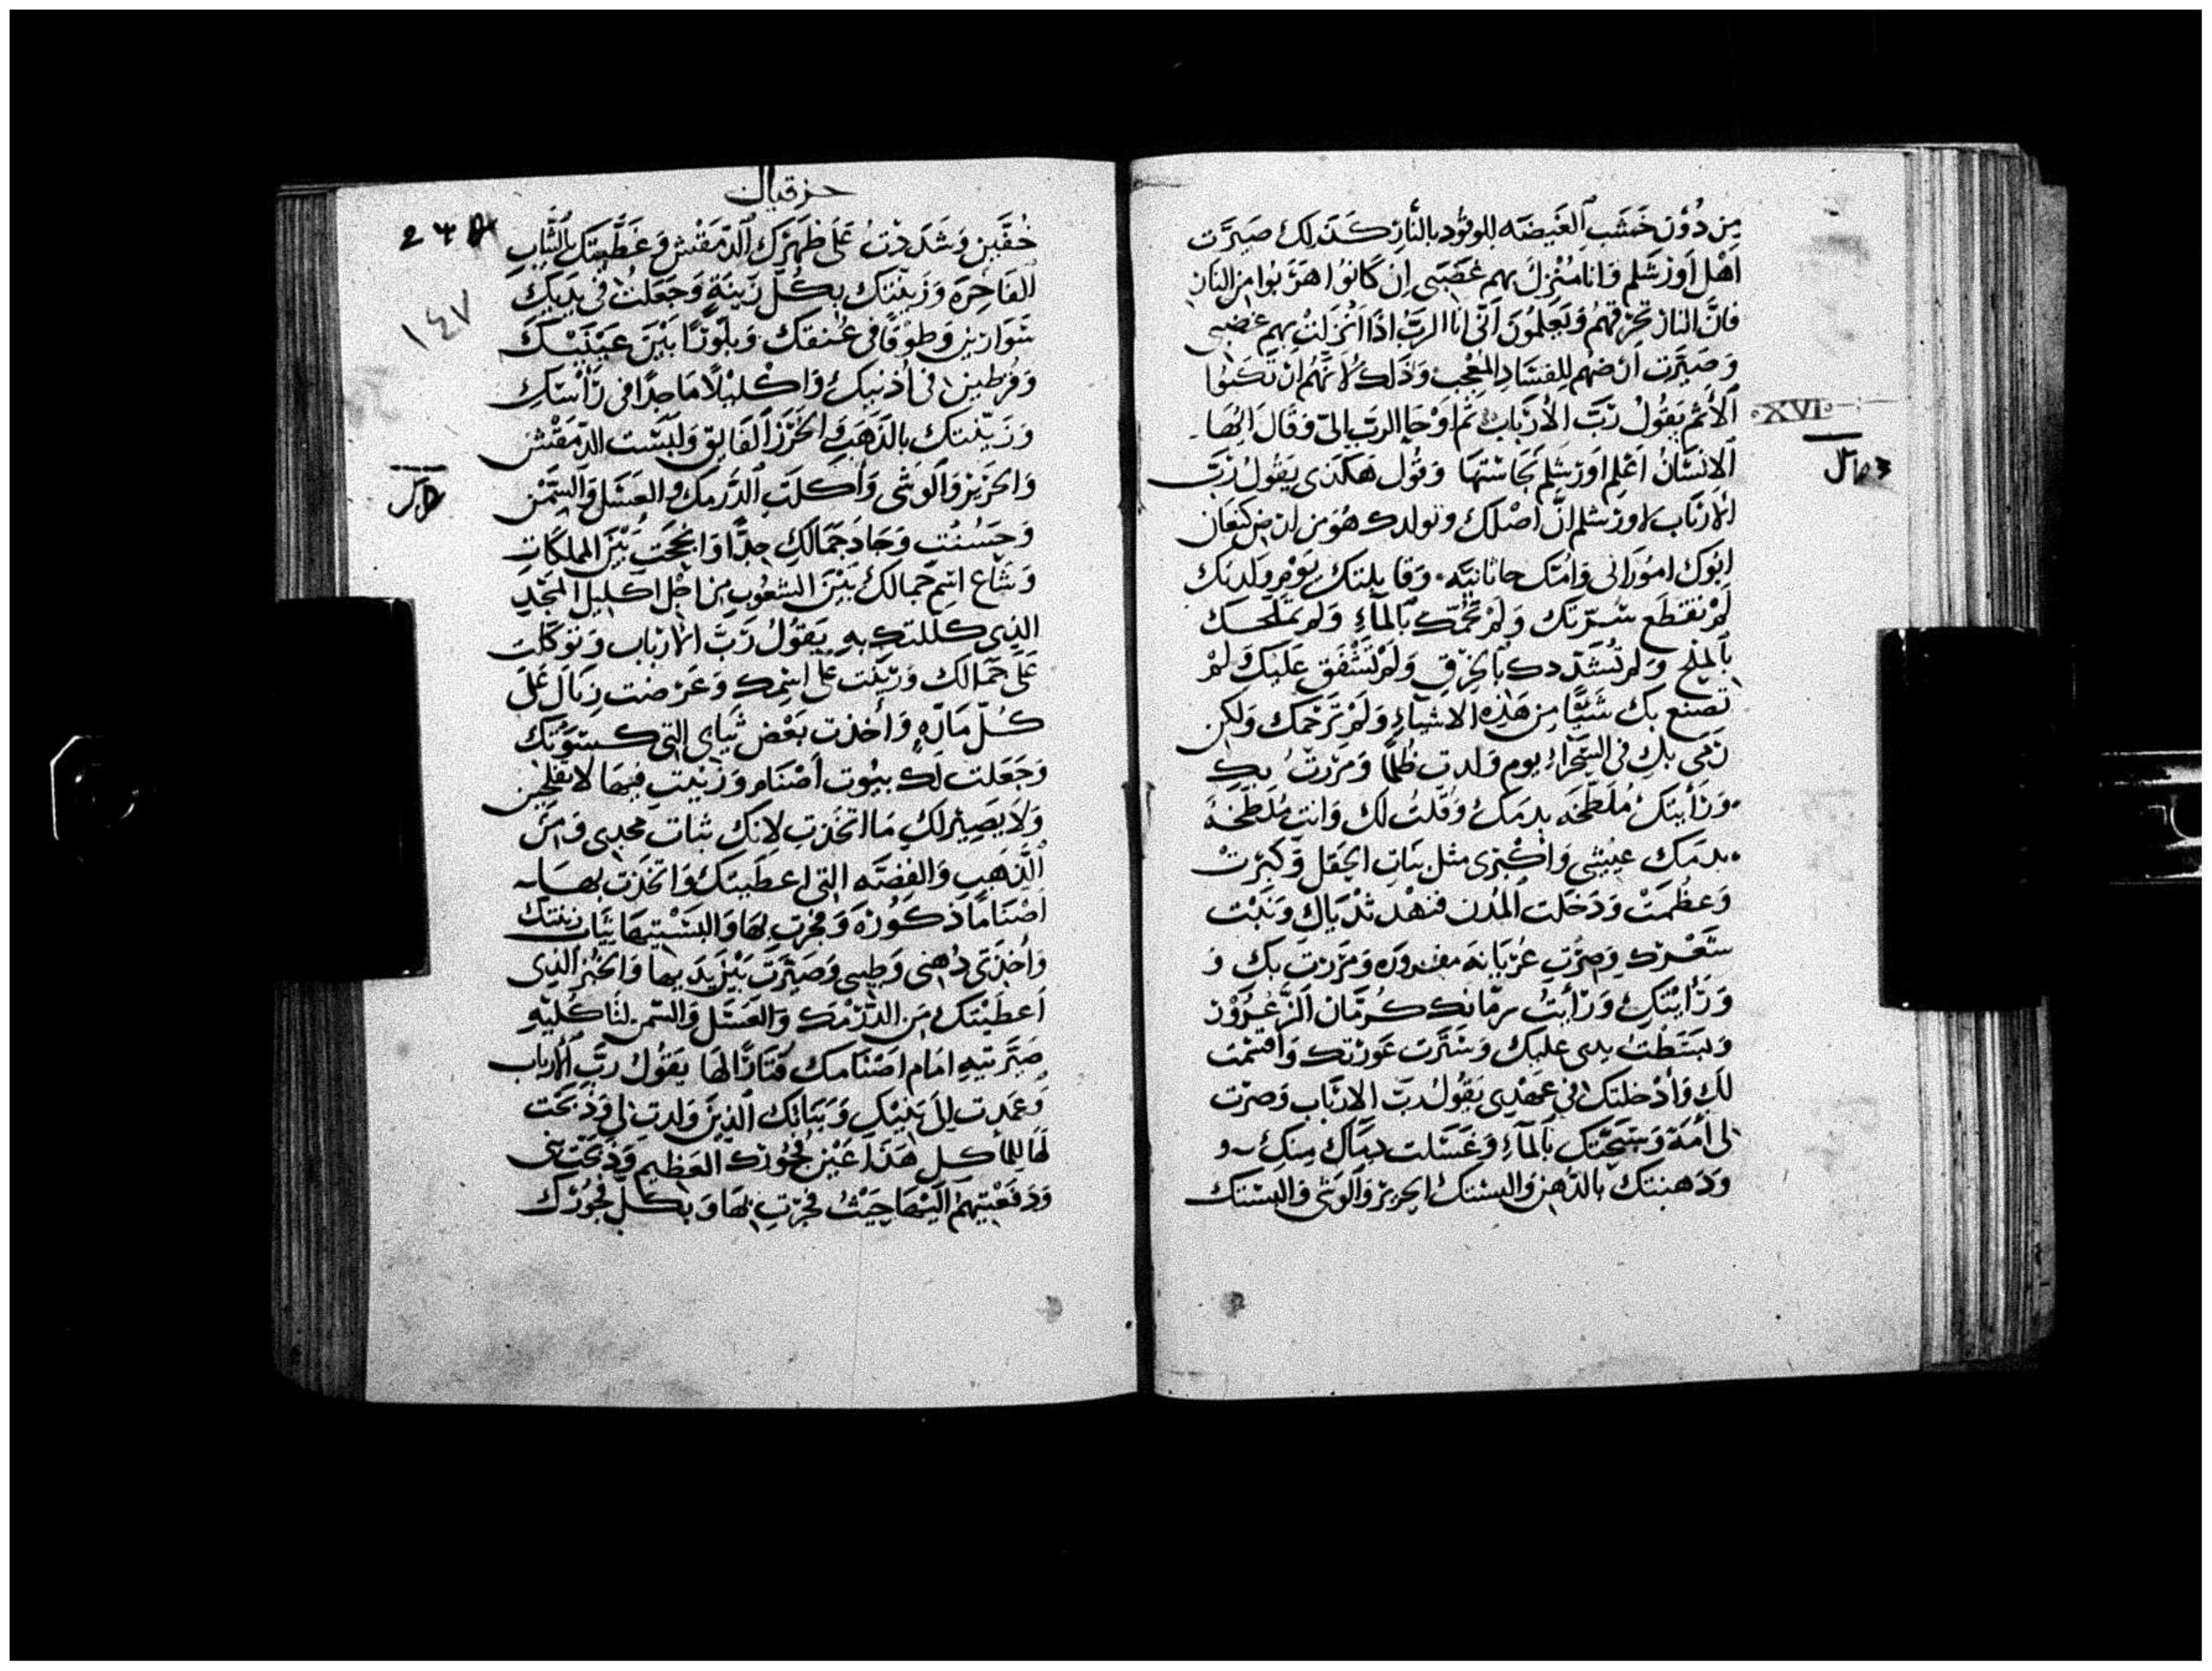 من دون خشب الغيضه للوقود بالنار كذلك صيرت
اهل اورشلم وانا منزل بهم غضبي ان كانوا هربوا من النار
فان النار تحرقهم ويعلمون اني انا الرب اذا انزلت بهم غضبي
وصيرت ارضهم للفساد المعجب وذلك لانهم ارتكبوا
الأثم يقول رب الأرباب ثم اوحا الرب الي وقال ايها
XVI
الانسان اعلم اورشلم نجاستها وقول هكذى يقول رب
الارباب لاورشلم ان اصلك وتولدك هو من ارض كنعان
ابوك اموراني وامك حاثانيه وقابلتك يوم ولدتك
لم تقطع سرتك ولم تحمك بالماء ولم تملحك
بالملح ولم تشددك بالخرق ولم تشفق عليك ولم
تصنع بك شيًا من هذه الاشياء ولم ترحمك ولكن
رمي بك في الصحراء يوم ولدت ظلما ومررت بك
ورأيتك ملطخه بدمك وقلت لك وانت ملطخة
بدمك عيشي واكبري مثل نبات الحقل وكبرت
وعظمت ودخلت المدن فنهد ثدياك ونبت
شعرك وصرت عريانه ومررت بك و
ورأيتك ورأيت رمانك كرمان الزعرور
وبسطت يدي عليك وسترت عورتك واقسمت
لك وأدخلتك في عهدي يقول رب الارباب وصرت
لي أمة وسحتك بالماء وغسلت دماك منك و
ودهنتك بالدهن والبستك الحرير والوشي والبستك
حزقيال
١٤٧
خفين وشددت على ظهرك الدمقس وغطيتك بالثياب
الفاخره وزينتك بكل زينة وجعلت في يديك
سوارين وطوقا في عنقك وبلورًا بين عينيك
وقرطين في أذنيك واكليلًا ماجدًا في رأسك
وزينتك بالذهب والخرز الفايق ولبست الدمقس
والحرير والوشى وأكلت الدرمك والعسل والسمن
وحسنت وجاد جمالك جدًا وانجحت بين المملكات
وشاع اسم جمالك بين الشعوب من اجل اكليل المجد
الذي كللتك به يقول رب الارباب وتوكلت
على جمالك وزنيت على اسمك وعرضت زناك على
كل مارٍ وأخذت بعض ثيابي التي كسوتك
وجعلت لك بيوت أصنام وزنيت فيها لا تفلحين
ولا يصير لك ما اتخذت لانك ثبات مجدي ومن
الذهب والفضه التي اعطيتك واتخذت بها
أصنامًا ذكوره وفجرت بها والبستيها ثياب زينتك
وأخذتي دهني وطيبي وصيرت بين يديها والخبز الذي
أعطيتك من الدرمك والعسل والسمن لتاكليه
صيرتيه امام اصنامك قتارًا لها يقول رب الارباب
وعمدت الى بنيك وبناتك الذين ولدت لي وذبحت
لها للمأكل هذا غير فجورك العظيم وذبحت بني
ودفعتيهم اليها حيث فجرت بها وبكل فجورك